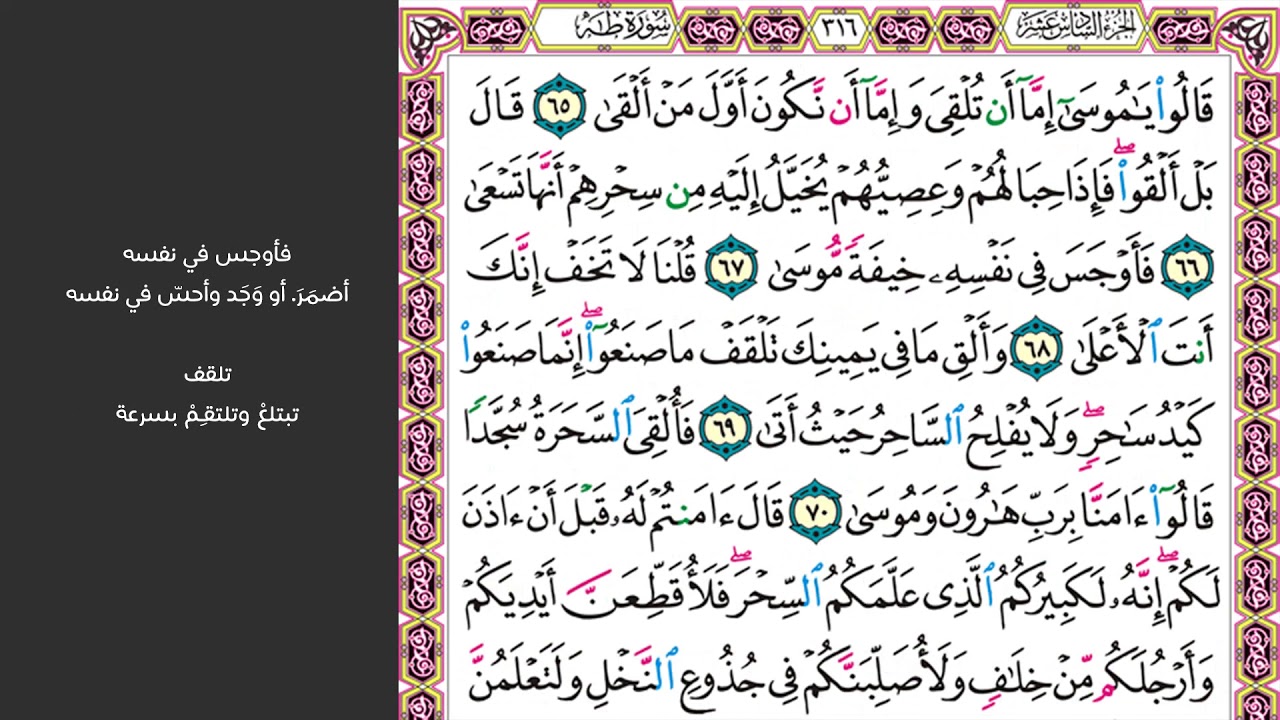 الجزء السادس عشر
٣١٦
سورة طه
قَالُوا۟ يَٰمُوسَىٰٓ إِمَّآ أَن تُلْقِىَ وَإِمَّآ أَن نَّكُونَ أَوَّلَ مَنْ أَلْقَىٰ ٦٥ قَالَ
بَلْ أَلْقُوا۟ ۖ فَإِذَا حِبَالُهُمْ وَعِصِيُّهُمْ يُخَيَّلُ إِلَيْهِ مِن سِحْرِهِمْ أَنَّهَا تَسْعَىٰ
٦٦ فَأَوْجَسَ فِى نَفْسِهِۦ خِيفَةً مُّوسَىٰ ٦٧ قُلْنَا لَا تَخَفْ إِنَّكَ
أَنتَ ٱلْأَعْلَىٰ ٦٨ وَأَلْقِ مَا فِى يَمِينِكَ تَلْقَفْ مَا صَنَعُوٓا۟ ۖ إِنَّمَا صَنَعُوا۟
كَيْدُ سَٰحِرٍ ۖ وَلَا يُفْلِحُ ٱلسَّاحِرُ حَيْثُ أَتَىٰ ٦٩ فَأُلْقِىَ ٱلسَّحَرَةُ سُجَّدًا
قَالُوٓا۟ ءَامَنَّا بِرَبِّ هَٰرُونَ وَمُوسَىٰ ٧٠ قَالَ ءَامَنتُمْ لَهُۥ قَبْلَ أَنْ ءَاذَنَ
لَكُمْ ۖ إِنَّهُۥ لَكَبِيرُكُمُ ٱلَّذِى عَلَّمَكُمُ ٱلسِّحْرَ ۖ فَلَأُقَطِّعَنَّ أَيْدِيَكُمْ
وَأَرْجُلَكُم مِّنْ خِلَٰفٍ وَلَأُصَلِّبَنَّكُمْ فِى جُذُوعِ ٱلنَّخْلِ وَلَتَعْلَمُنَّ
فأوجس في نفسه
أضمَرَ. أو وَجَد وأحسّ في نفسه
تلقف
تبتلعْ وتلتقِمْ بسرعة